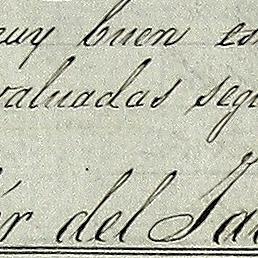 muy buen es
valuadas segú
ér del Sa